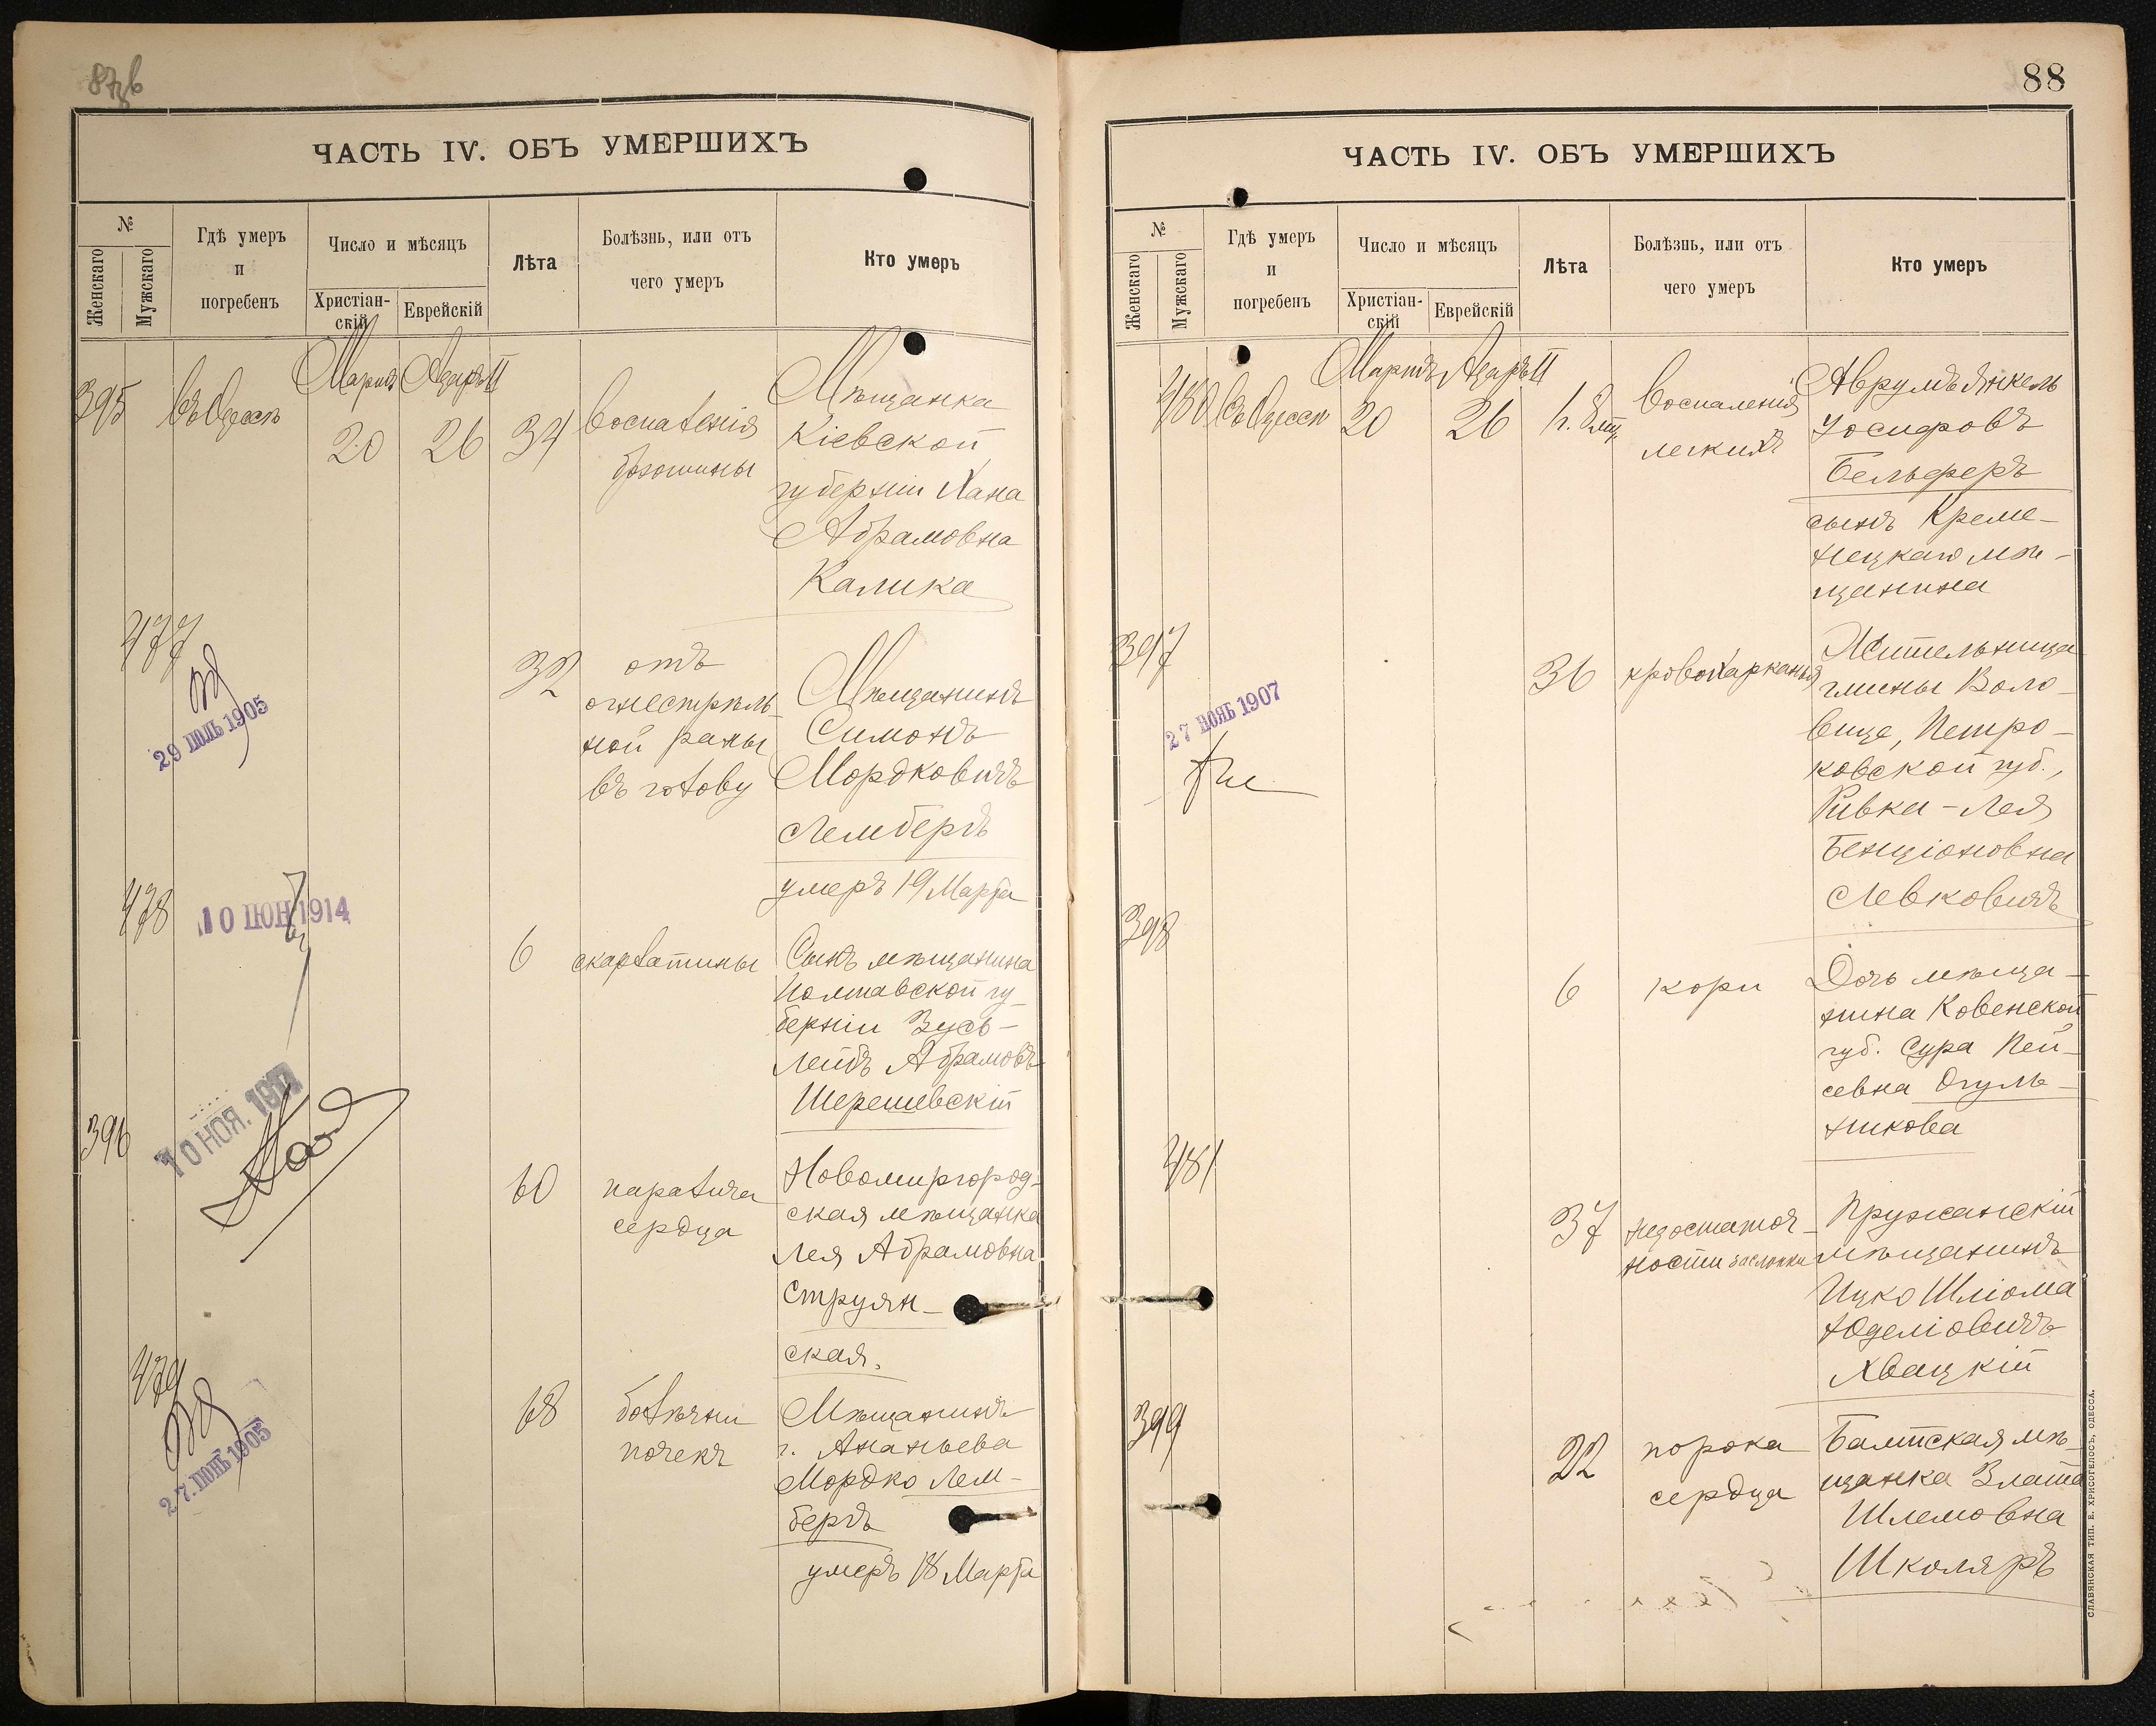 ЧАСТЬ IV. ОБЪ УМЕРШИХЪ
№
Женскаго
Мужскаго
Гдѣ умеръ
и
погребенъ
Число и мѣсяцъ
Христіан-
скій
Еврейскій
Лѣта
Болѣзнь, или отъ
чего умеръ
Кто умеръ
395
въ Одессѣ
Мартъ
20
Адаръ II
26
34
воспаленія
брюшины
Мѣщанка
Кіевской
губерніи Хана
Абрамовна
Калика
477
29 ІЮЛЬ 1905
32
отъ
огнестрѣль-
ной раны
въ голову
Мѣщанинъ
Симонъ
Мордковичъ
Лембергъ
умеръ 19 Марта
478
10 ІЮН 1914
6
скарлатины
Сынъ мѣщанина
Полтавской гу-
берніи Зусь-
Лейбъ Абрамовъ
Шерешевскій
396
10 НОЯ.
60
паралича
сердца
Новомиргород-
ская мѣщанка
Лея Абрамовна
Струян-
ская.
479
27. 1905
68
болѣзни
почекъ
Мѣщанинъ
г. Ананьева
Мордко Лем-
бергъ
умеръ 18 Марта
88
ЧАСТЬ IV. ОБЪ УМЕРШИХЪ
№
Женскаго
Мужскаго
Гдѣ умеръ
и
погребенъ
Число и мѣсяцъ
Христіан-
скій
Еврейскій
Лѣта
Болѣзнь, или отъ
чего умеръ
Кто умеръ
480
въ Одессѣ
Мартъ
20
Адаръ II
26
воспаленія
легкихъ
Аврумъ Янкель
Іосифовъ
Бельферъ
сынъ Креме-
нецкаго мѣ-
щанина
397
27 НОЯБ 1907
36
кровохарканія
Жительница
гмины Воло-
вице, Петро-
ковской губ.,
Ривка-Лея
Бенціоновна
Левковичъ
398
6
кори
Дочь мѣща-
нина Ковенской
губ. Сура Пей-
севна Огуль-
никова
481
37
недостаточ-
ности заслонки
Пружанскій
мѣщанинъ
Ицко Шліома
Юделіовичъ
Хвацкій
399
22
порока
сердца
Балтская мѣ-
щанка Злата
Шлемовна
Школяръ
СЛАВЯНСКАЯ ТИП. Е. ХРИСОГЕЛОСЪ, ОДЕССА.